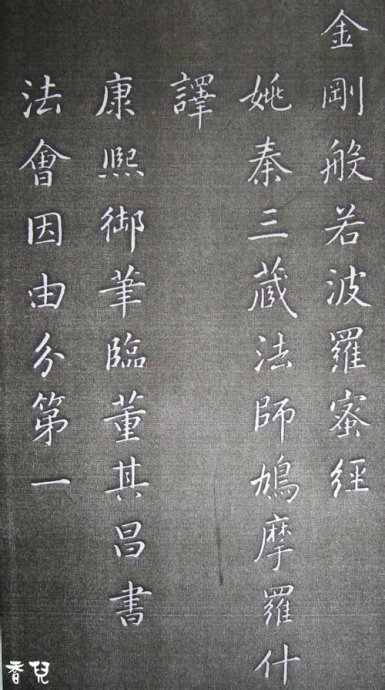 金剛般若波羅蜜經
姚秦三藏法師鳩摩羅什
譯
康熙御筆臨董其昌書
法會因由分第一
香兒